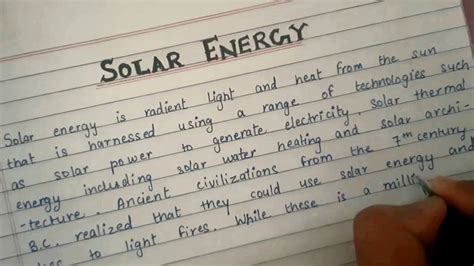 SOLAR ENERGY
Solar energy is radient light and heat from the sun
that is harnessed using a range of technologies such
as solar power to generate electricity, solar thermal
energy including solar water heating and solar archi-
-tecture. Ancient civilizations from the 7th century
B.C. realized that they could use solar energy and
to light fires. While these is a milli